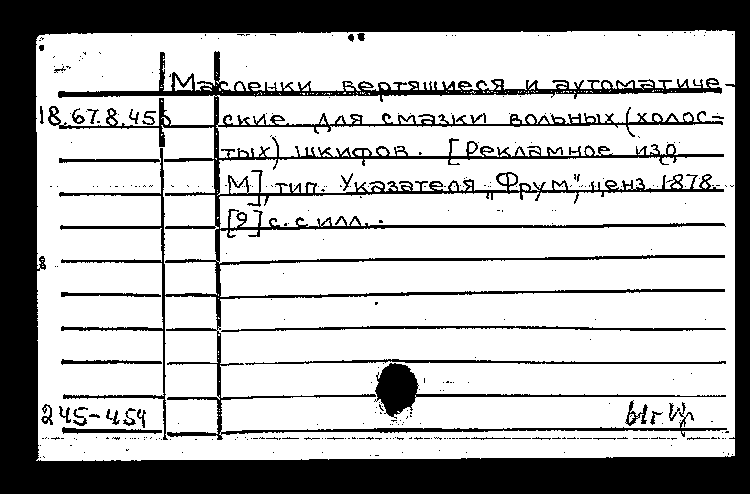 Масленки вертящиеся и аутоматиче-
18.67.8.456 ские для смазки вольных (холос-
тых) шкифов. [Рекламное изд.
М], тип. Указателя „Фрум“, ценз. 1878.
[9] с. с илл.
245-454